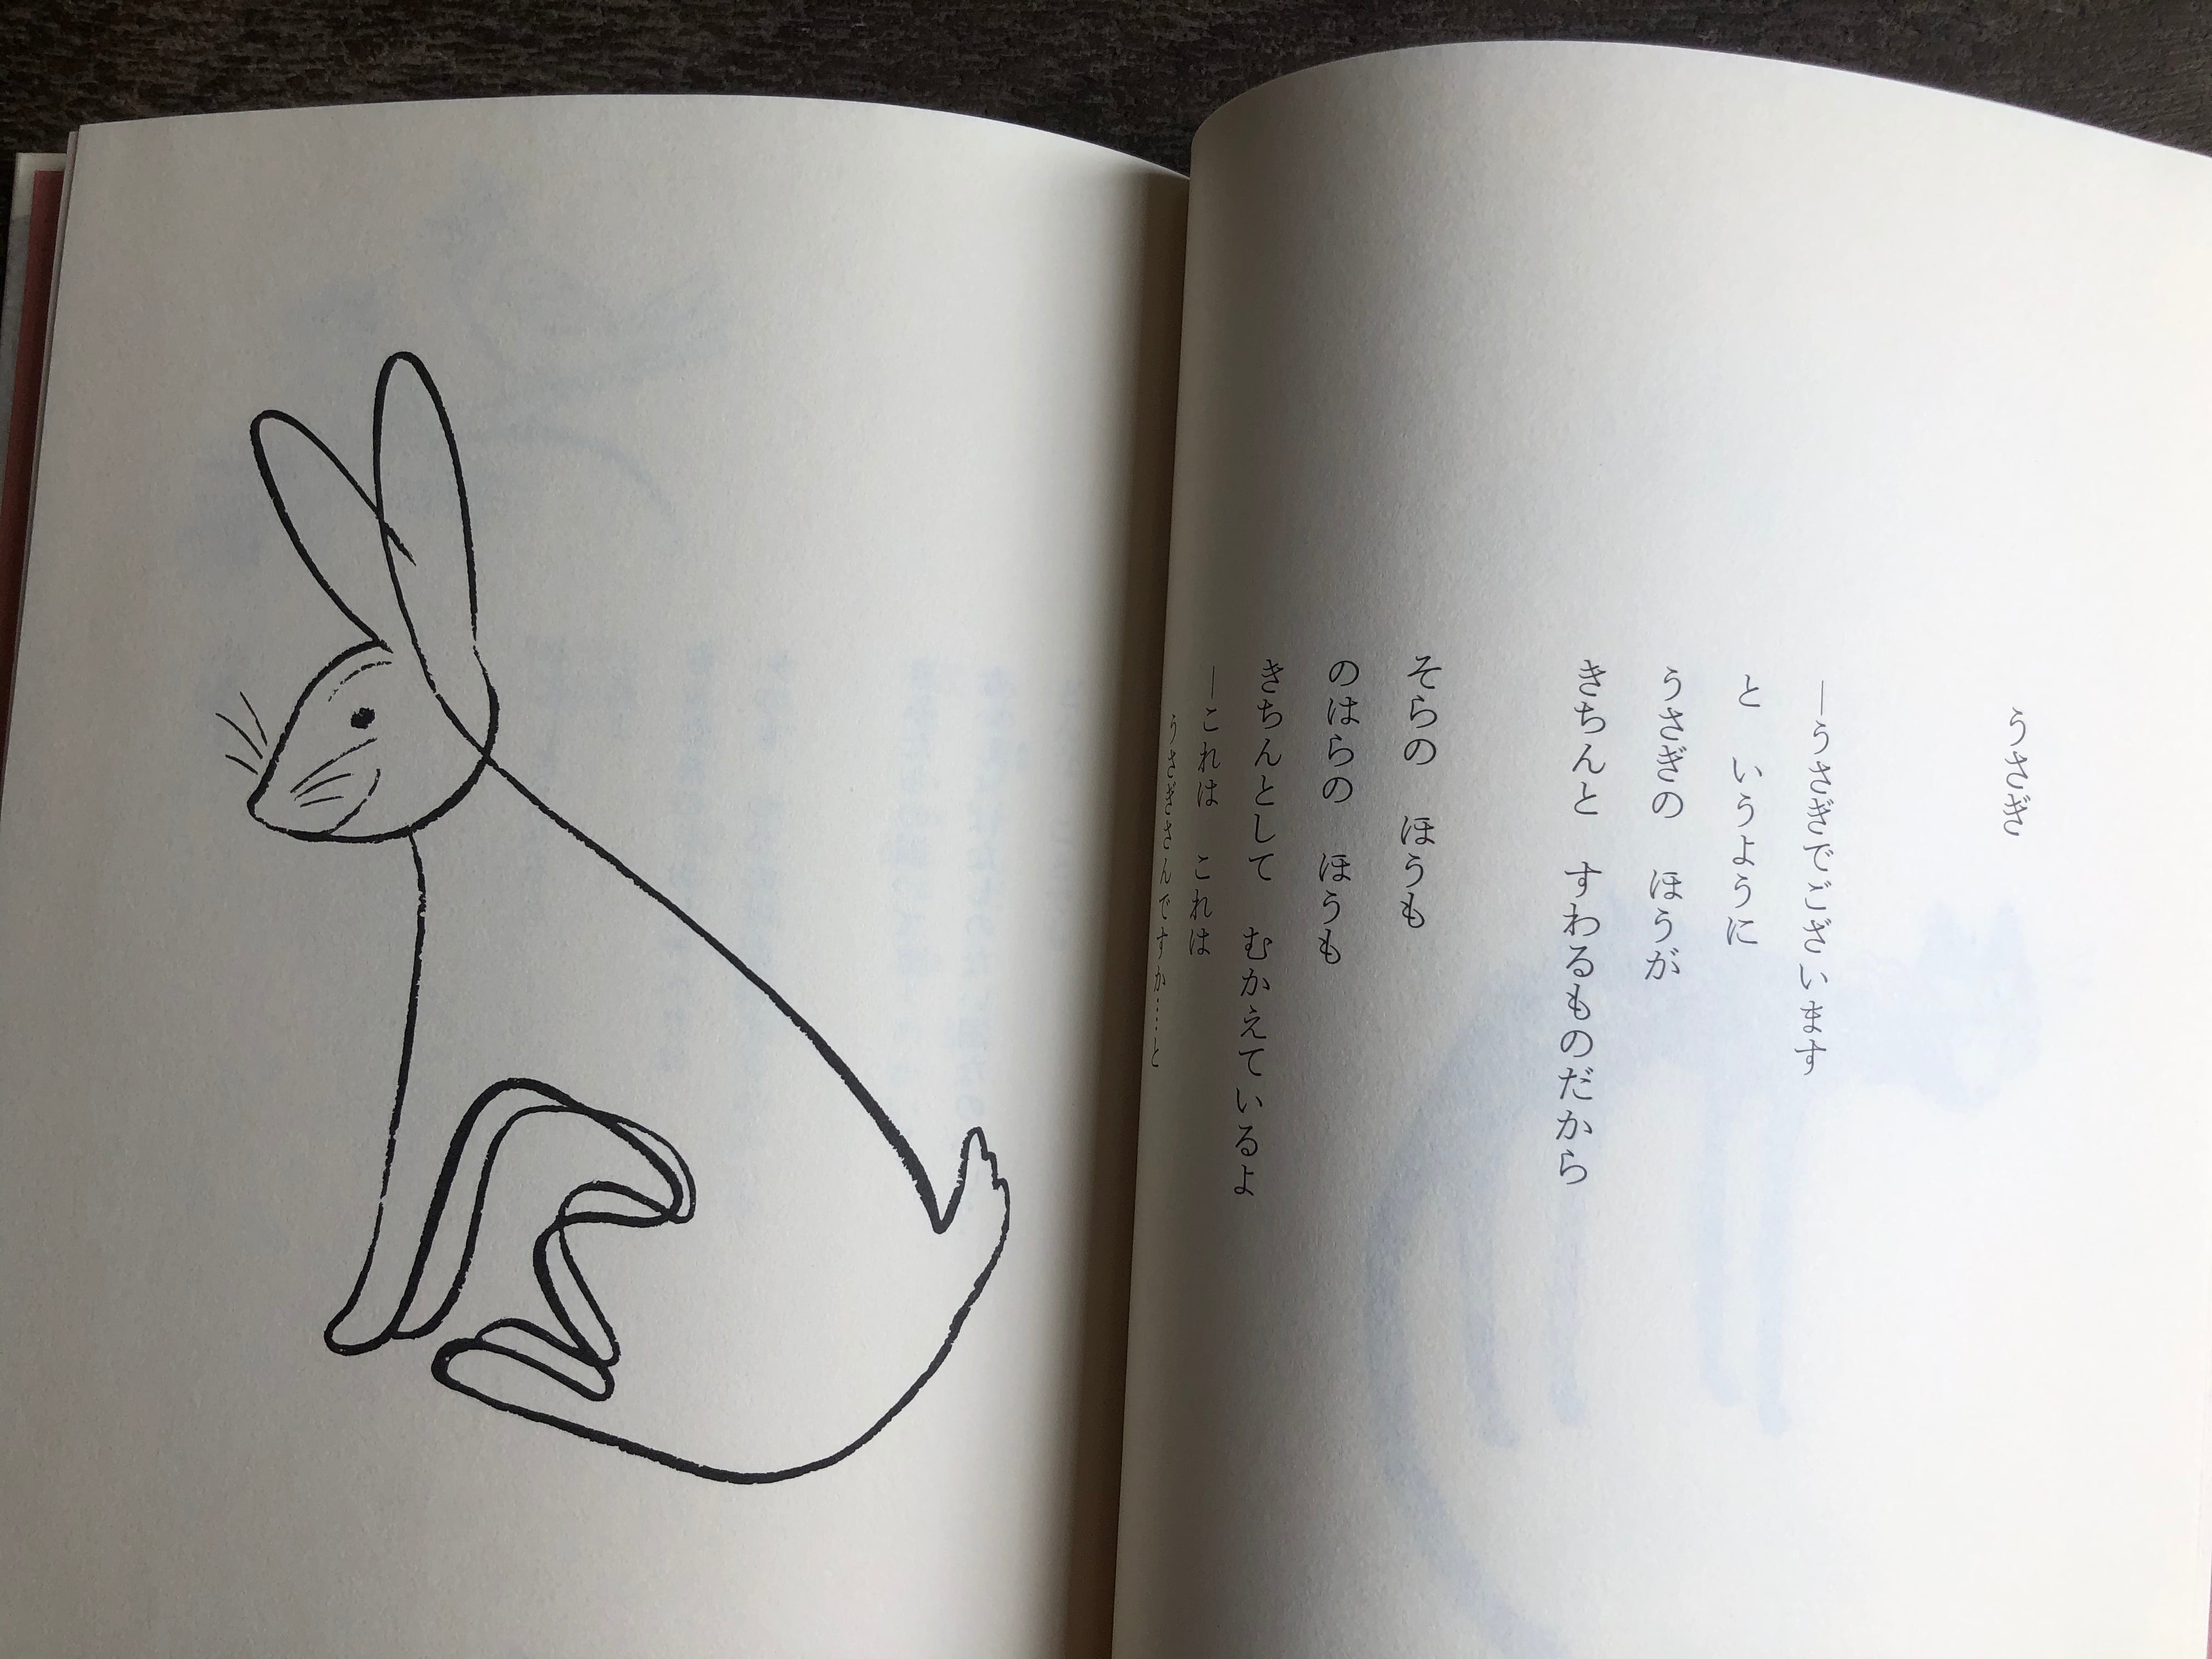 うさぎ
―うさぎでございます
と　いうように
うさぎの　ほうが
きちんと　すわるものだから
そらの　ほうも
のはらの　ほうも
きちんとして　むかえているよ
―これは　これは
うさぎさんですか……と